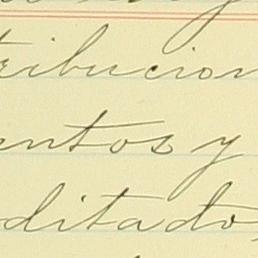 tribucion
entos y
editado,